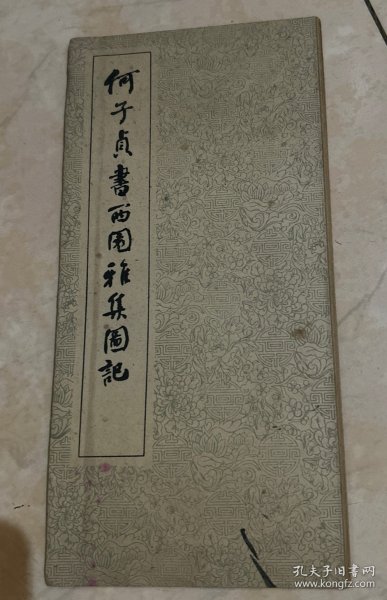 何子貞書西園雅集圖記
孔夫子旧书网
www.kongfz.com